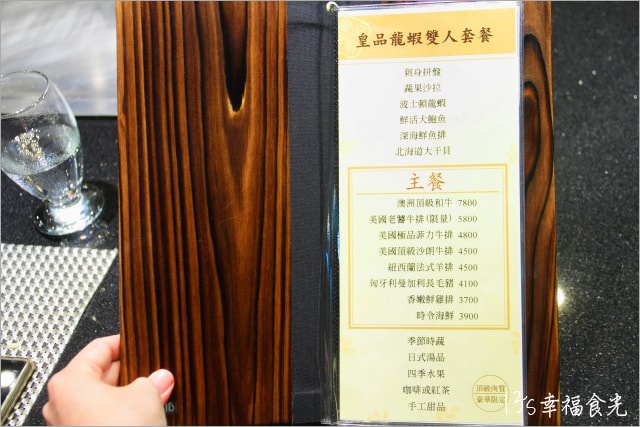 皇品龍蝦雙人套餐
刺身拼盤
蔬果沙拉
波士頓龍蝦
鮮活大鮑魚
深海鮮魚排
北海道大干貝
主餐
澳洲頂級和牛 7800
美國老饕牛排(限量) 5800
美國極品菲力牛排 4800
美國頂級沙朗牛排 4500
紐西蘭法式羊排 4500
匈牙利曼加利長毛豬 4100
香嫩鮮雞排 3700
時令海鮮 3900
季節時蔬
日式湯品
四季水果
咖啡或紅茶
手工甜品
頂級肉質
豪華限定
幸福食光